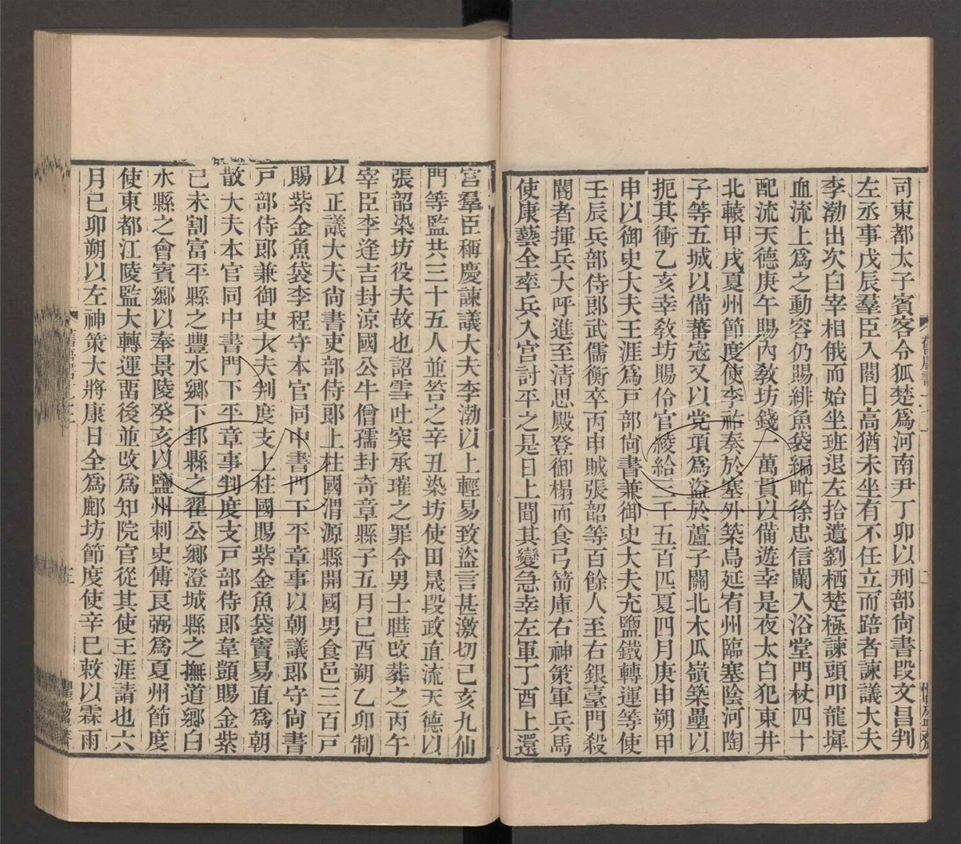 司東都太子賓客令狐楚爲河南尹丁卯以刑部尚書段文昌判
左丞事戊辰羣臣入閤日高猶未坐有不任立而踣者諫議大夫
李渤出次白宰相俄而始坐班退左拾遺劉栖楚極諫頭叩龍墀
血流上爲之動容仍賜緋魚袋編甿徐忠信闌入浴堂門杖四十
配流天德庚午賜內敎坊錢一萬貫以備遊幸是夜太白犯東井
北轅甲戌夏州節度使李祐奏於塞外築烏延宥州臨塞陰河陶
子等五城以備蕃寇又以党項爲盜於蘆子關北木瓜嶺築壘以
扼其衝乙亥幸敎坊賜伶官綾絹三千五百匹夏四月庚申朔甲
申以御史大夫王涯爲戶部尚書兼御史大夫充鹽鐵轉運等使
壬辰兵部侍郎武儒衡卒丙申賊張韶等百餘人至右銀臺門殺
閽者揮兵大呼進至清思殿登御榻而食弓箭庫右神策軍兵馬
使康藝全率兵入宮討平之是日上聞其變急幸左軍丁酉上還
宮羣臣稱慶諫議大夫李渤以上輕易致盜言甚激切己亥九仙
門等監共三十五人並笞之辛丑染坊使田晟段政直流天德以
張韶染坊役夫故也詔雪吐突承璀之罪令男士曣改葬之丙午
宰臣李逢吉封涼國公牛僧孺封奇章縣子五月己酉朔乙卯制
以正議大夫尚書吏部侍郎上柱國渭源縣開國男食邑三百戶
賜紫金魚袋李程守本官同中書門下平章事以朝議郎守尚書
戶部侍郎兼御史大夫判度支上柱國賜紫金魚袋竇易直爲朝
散大夫本官同中書門下平章事判度支戶部侍郎韋顗賜金紫
己未割富平縣之豐水鄉下邽縣之翟公鄉澄城縣之撫道鄉白
水縣之會賓鄉以奉景陵癸亥以鹽州刺史傅良弼爲夏州節度
使東都江陵監大轉運畱後並改爲知院官從其使王涯請也六
月己卯朔以左神策大將康日全爲鄜坊節度使辛巳敕以霖雨